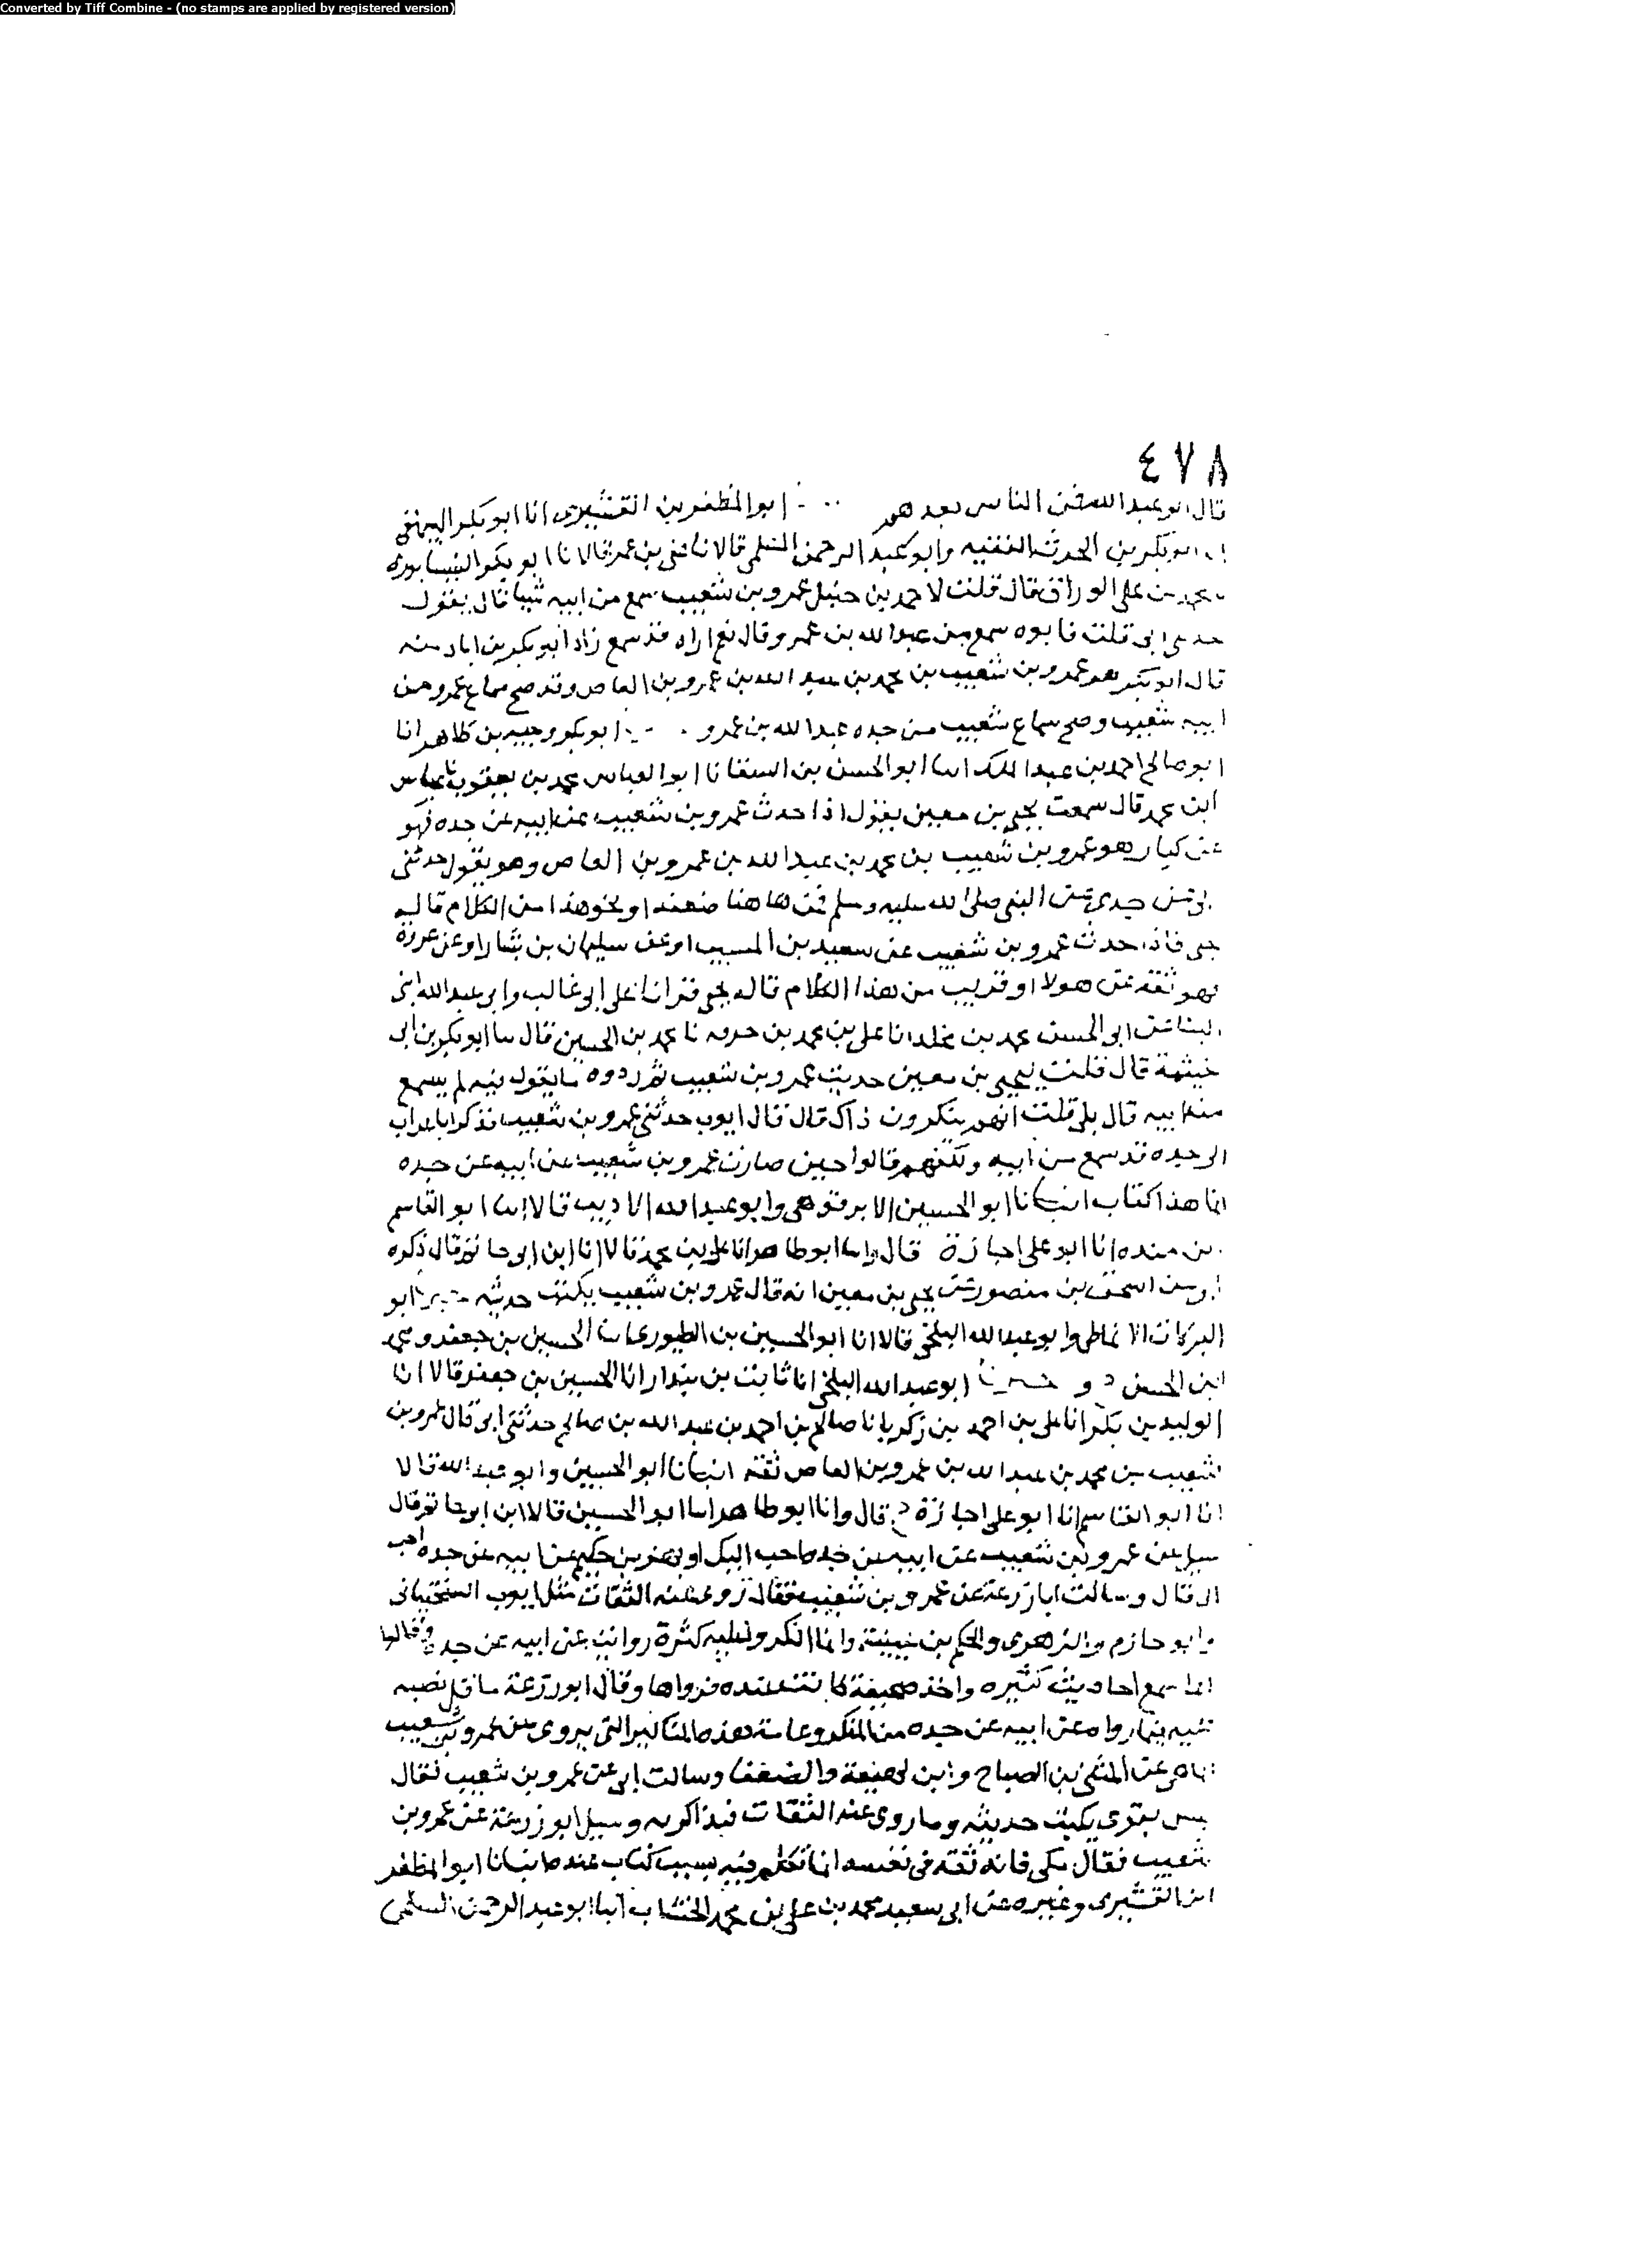 Converted by Tiff Combine - (no stamps are applied by registered version)
٤٧٨
قال ابو عبد الله فمن الناس بعدهم ابو المظفر بن القشيرى انا ابو بكر البيهقى
ابو بكر بن الحرث الفقيه وابو عبد الرحمن السلمى قالا نا على بن عمر قالا نا ابو بكر النيسابورى
محمد بن على الوراق قال قلت لاحمد بن حنبل عمرو بن شعيب سمع من ابيه شيا قال يقول
حدثنى ابى قلت فابوه سمع من عبد الله بن عمرو قال نعم اراه قد سمع زاد ابو بكر بن اباد منه
قال ابو بكر هو عمرو بن شعيب بن محمد بن عبد الله بن عمرو بن العاص وقد صح سماع عمرو من
ابيه شعيب وصح سماع شعيب من جده عبد الله بن عمرو ابو بكر وجيه بن طاهر انا
ابو صالح احمد بن عبد الملك انا ابو الحسن بن السقا نا ابو العباس محمد بن يعقوب نا عباس
ابن محمد قال سمعت يحيى بن معين يقول اذا حدث عمرو بن شعيب عن ابيه عن جده فهو
كتاب هو عمرو بن شعيب بن محمد بن عبد الله بن عمرو بن العاص وهو يقول حدثنى
ابى عن جدى عن النبى صلى الله عليه وسلم فمن هاهنا ضعفه او نحو هذا من الكلام قاله
يحيى فاذا حدث عمرو بن شعيب عن سعيد بن المسيب او عن سليمان بن يسار او عن عروة
فهو ثقة عن هولا او قريب من هذا الكلام قاله يحيى قرانا على ابى غالب وابى عبد الله ابنى
البنا عن ابى الحسن محمد بن مخلد انا على بن محمد بن خزفه نا محمد بن الحسين قال نا ابو بكر بن ابى
خيثمة قال قلت ليحيى بن معين حديث عمرو بن شعيب لم ردوه ما يقول فيه لم يسمع
من ابيه قال بلى قلت انهم ينكرون ذاك قال قال ايوب حدثنى عمرو بن شعيب فذكر ابا عن اب
الى جده قد سمع من ابيه ولكنهم قالوا حين مات عمرو بن شعيب عن ابيه عن جده
انما هذا كتاب انبانا ابو الحسين الابرقوهى وابو عبد الله الاديب قالا انا ابو القاسم
بن منده انا ابو على اجازة قال وانا ابو طاهر انا على بن محمد قالا انا ابن ابى حاتم قال ذكره
ابى عن اسحق بن منصور عن يحيى بن معين انه قال عمرو بن شعيب يكتب حديثه ابو
البركات الانماطى وابو عبد الله البلخى قالا انا ابو الحسين بن الطيورى انا الحسين بن جعفر ومحمد
ابن الحسن و ابو عبد الله البلخى انا ثابت بن بندار انا الحسين بن جعفر قالا انا
الوليد بن بكر انا على بن احمد بن زكريا نا صالح بن احمد بن عبد الله بن صالح حدثنى ابى قال عمرو بن
شعيب بن محمد بن عبد الله بن عمرو بن العاص ثقة انبانا ابو الحسين وابو عبد الله قالا
انا ابو القاسم انا ابو على اجازة قال وانا ابو طاهر انا ابو الحسين قالا ابن ابى حاتم قال
سيل عن عمرو بن شعيب عن ابيه عن جده احب اليك او بهز بن حكيم عن ابيه عن جده احب
الى قال وسالت ابا زرعة عن عمرو بن شعيب فقال روى عنه الثقات مثل ايوب السختيانى
وابو حازم والزهرى والحكم بن عيينة وانما انكروا عليه كثرة روايته عن ابيه عن جده وقالوا
انما سمع احاديث كثيره واخذ صحيفة كانت عنده فرواها وقال ابو زرعة ما قل نصيبه
فيه مما روى عن ابيه عن جده من المنكر وعامة هذه المناكير التى يروى عن عمرو بن شعيب
انما هى عن المثنى بن الصباح وابن لهيعة والضعفا وسالت ابى عن عمرو بن شعيب فقال
ليس بقوى يكتب حديثه وما روى عنه الثقات فيذاكر به وسيل ابو زرعة عن عمرو بن
شعيب فقال مكى فانه ثقة فى نفسه انما تكلم فيه بسبب كتاب عنده انبانا ابو المظفر
ابن القشيرى وغيره عن ابى سعيد محمد بن على بن محمد الخشاب انبا ابو عبد الرحمن السلمى